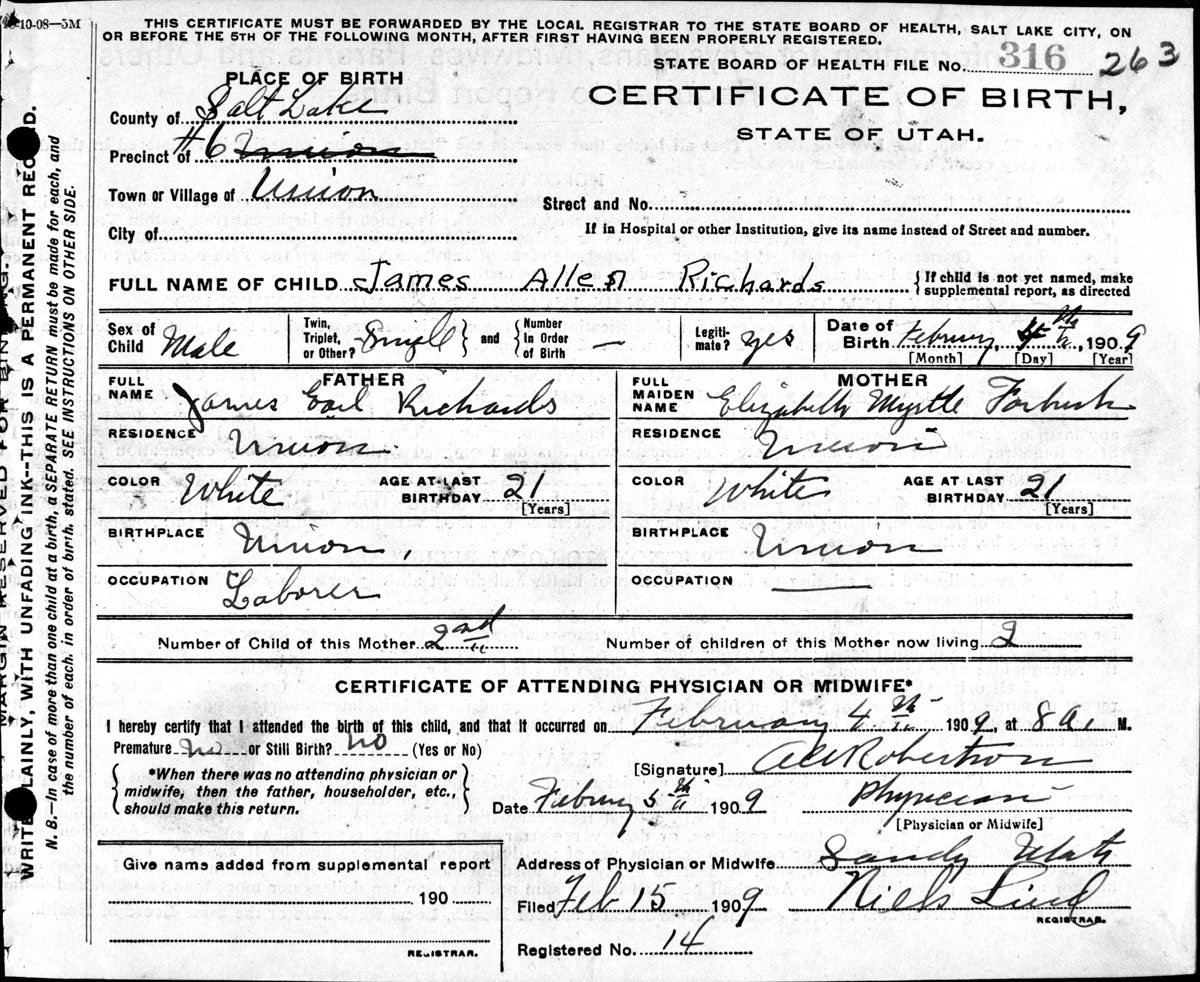 10-08—5M
THIS CERTIFICATE MUST BE FORWARDED BY THE LOCAL REGISTRAR TO THE STATE BOARD OF HEALTH, SALT LAKE CITY, ON
OR BEFORE THE 5TH OF THE FOLLOWING MONTH, AFTER FIRST HAVING BEEN PROPERLY REGISTERED.
STATE BOARD OF HEALTH FILE No. 316 263
PLACE OF BIRTH
CERTIFICATE OF BIRTH,
STATE OF UTAH.
County of Salt Lake
Precinct of #6 Union
Town or Village of Union
Street and No.
City of
If in Hospital or other Institution, give its name instead of Street and number.
FULL NAME OF CHILD James Allen Richards { If child is not yet named, make supplemental report, as directed
Sex of Child Male Twin, Triplet, or Other? Single } and { Number In Order of Birth — Legiti- mate? yes Date of Birth Februry, 4th, 1909
[Month] [Day] [Year]
FATHER MOTHER
FULL NAME James Earl Richards FULL MAIDEN NAME Elizabeth Myrtle Forbush
RESIDENCE Union RESIDENCE Union
COLOR White AGE AT LAST BIRTHDAY 21 [Years] COLOR White AGE AT LAST BIRTHDAY 21 [Years]
BIRTHPLACE Union, BIRTHPLACE Union
OCCUPATION Laborer OCCUPATION —
Number of Child of this Mother 2nd Number of children of this Mother now living 2
CERTIFICATE OF ATTENDING PHYSICIAN OR MIDWIFE*
I hereby certify that I attended the birth of this child, and that it occurred on February 4th 1909, at 8 a. M.
Premature no or Still Birth? no (Yes or No)
[Signature] Robertson
*When there was no attending physician or midwife, then the father, householder, etc., should make this return.
Date Februry 5th 1909 Physician
[Physician or Midwife]
Give name added from supplemental report
Address of Physician or Midwife Sandy Utah
190
Filed Feb 15 1909 Niels Lind
REGISTRAR.
Registered No. 14
REGISTRAR.
MARGIN RESERVED FOR BINDING.
WRITE PLAINLY, WITH UNFADING INK--THIS IS A PERMANENT RECORD.
N. B.—In case of more than one child at a birth, a SEPARATE RETURN must be made for each, and
the number of each, in order of birth, stated. SEE INSTRUCTIONS ON OTHER SIDE.